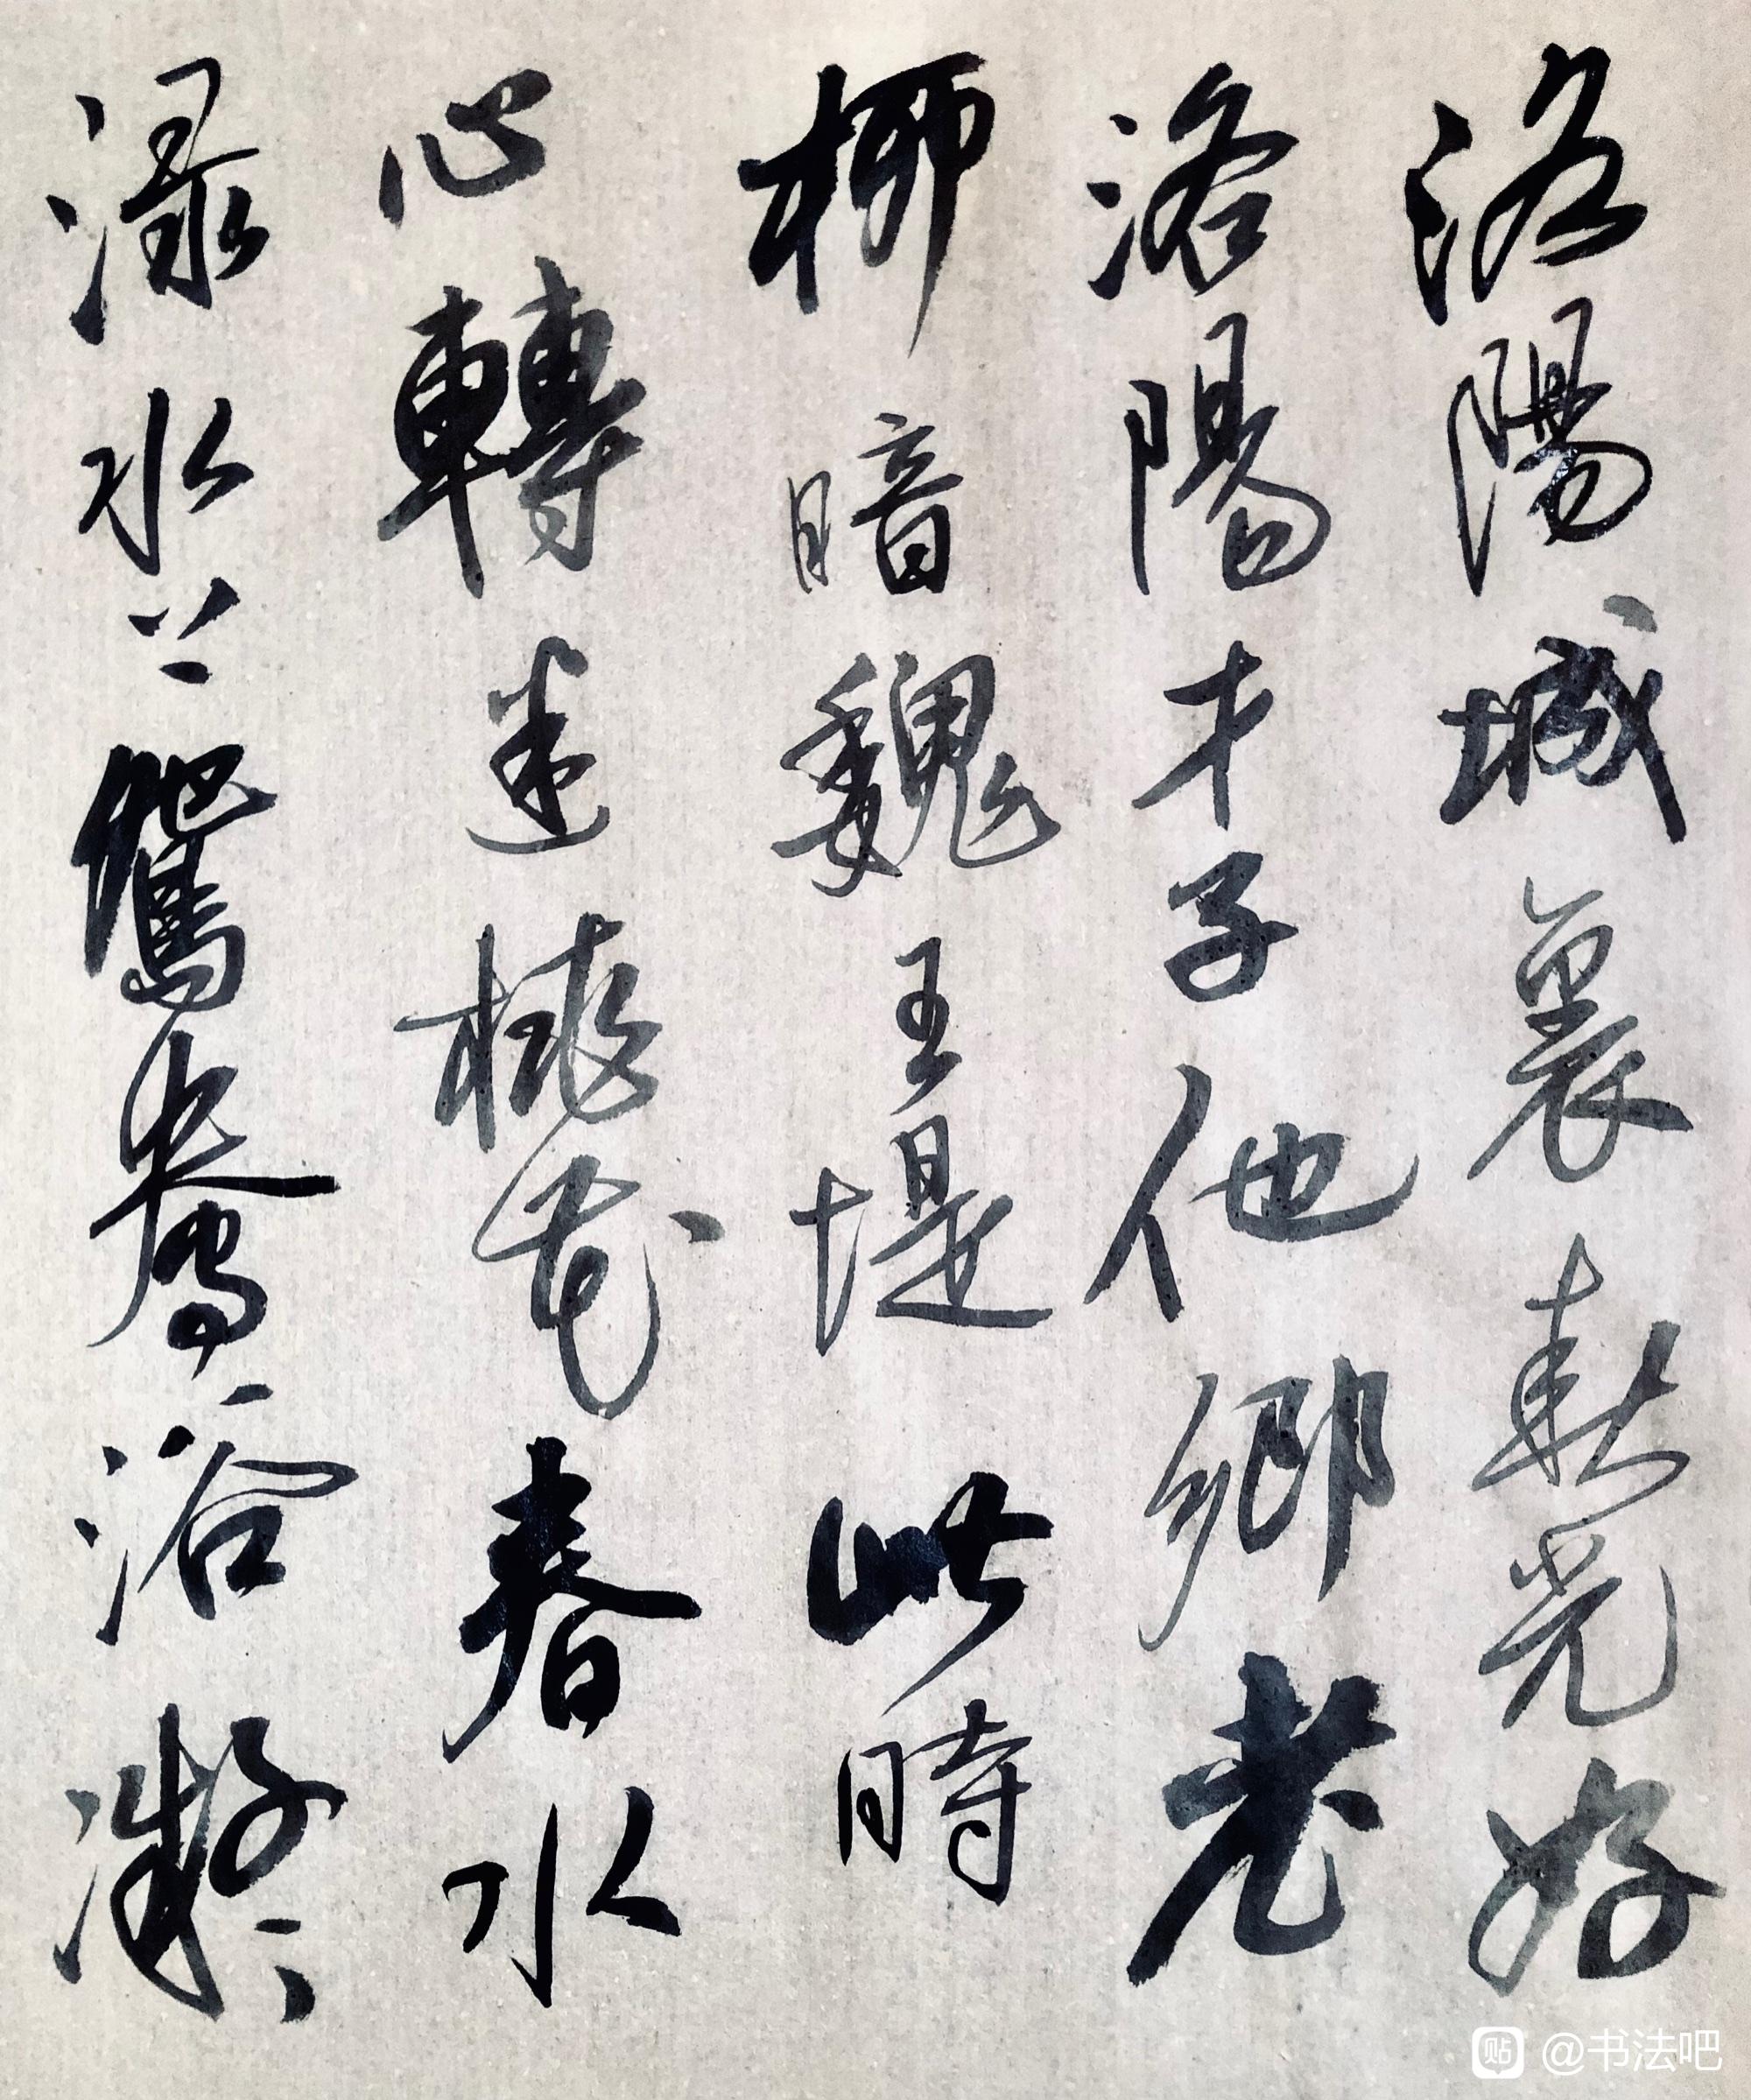 洛陽城裏春光好
洛陽才子他鄉老
柳暗魏王堤此時
心轉迷桃花春水
淥水上鴛鴦浴凝
贴 @书法吧